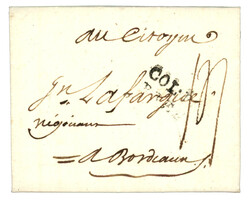 au Citoyen
COL
Jn. Lafargue
négociant
= a Bordeaux